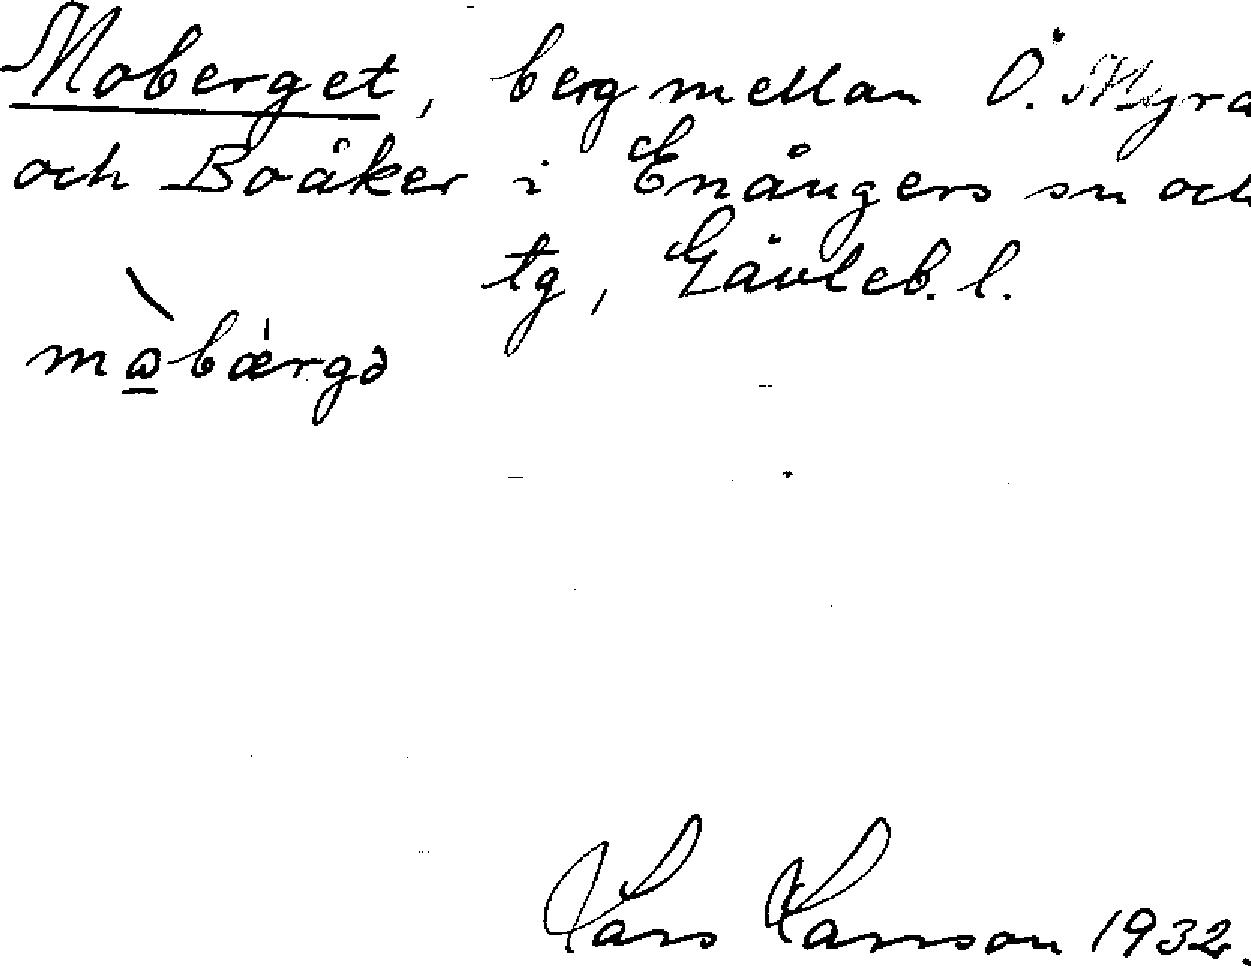 Moberget, berg mellan Ö. Myra
och Boåker i Enångers sn och
tg, Gävleb. l.
mɷ̀bǽrgə
Lars Larsson 1932.